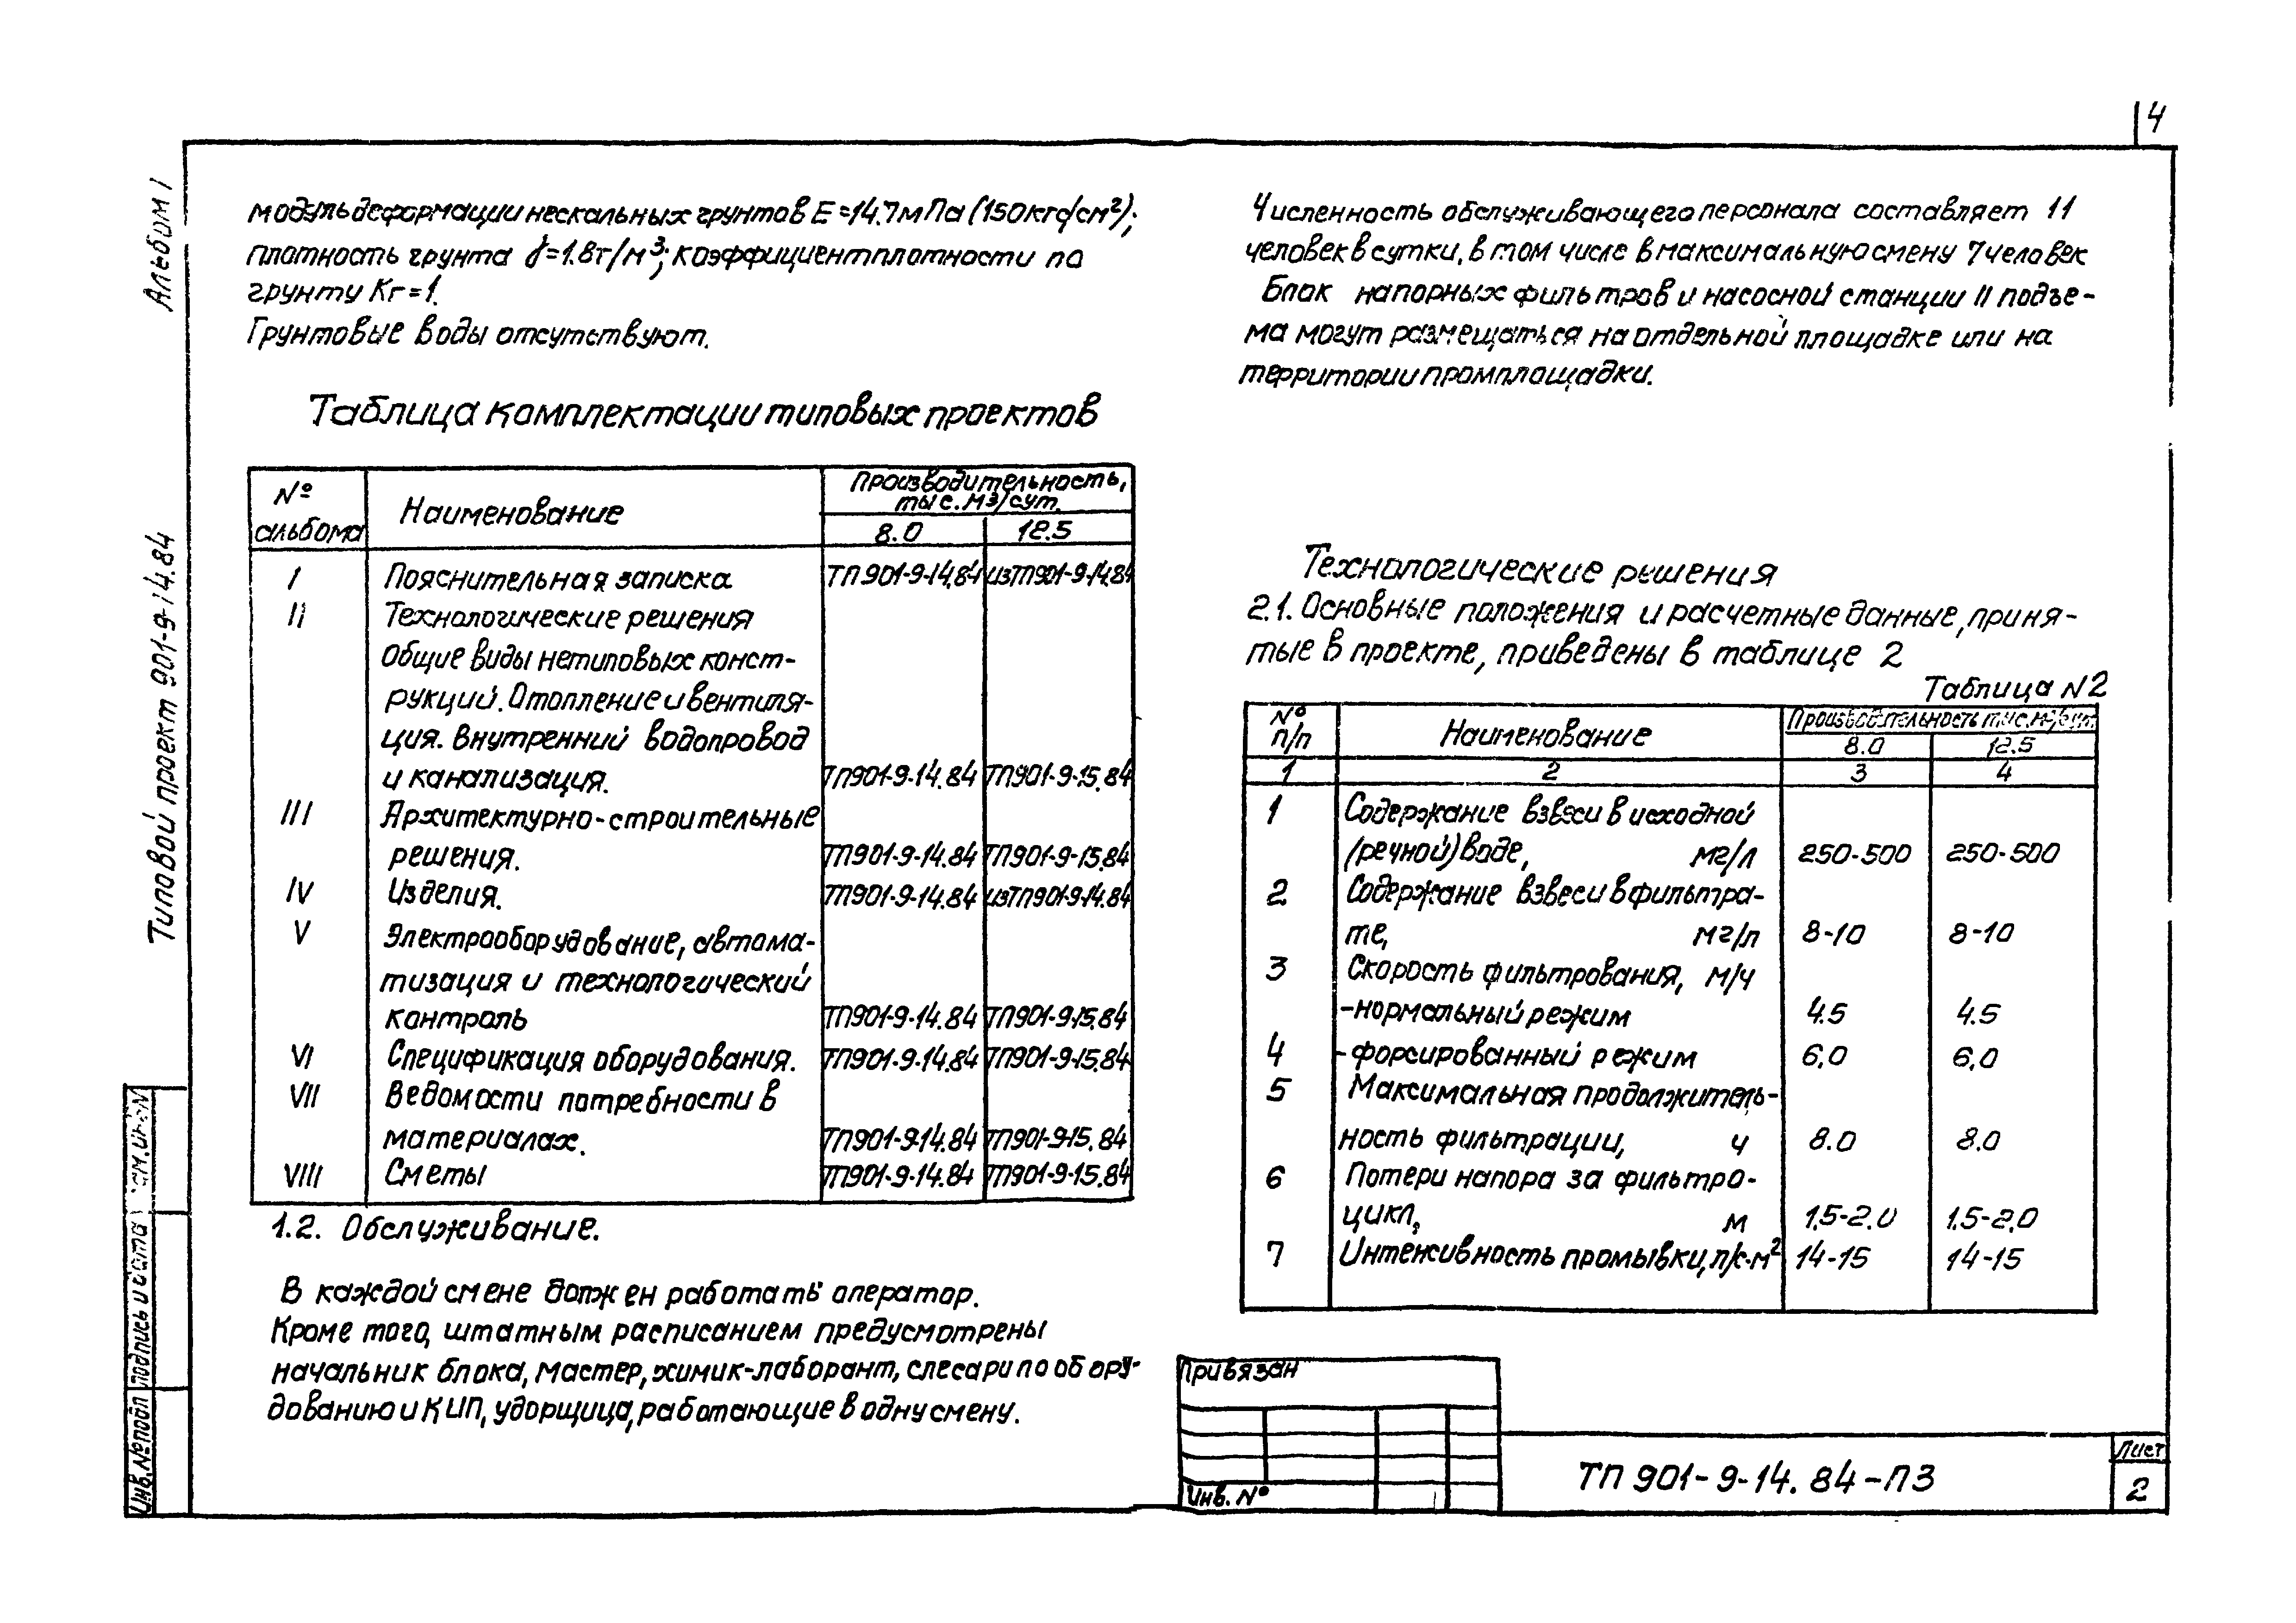 4
Альбом I
Типовой проект 901-9-14.84
модуль деформации нескальных грунтов Е=14.7мПа (150кгс/см²);
плотность грунта γ=1.8т/м³; коэффициент плотности по
грунту Кг=1.
Грунтовые воды отсутствуют.
Таблица комплектации типовых проектов
№ альбома Наименование Производительность, тыс. м3/сут.
8.0 12.5
I Пояснительная записка ТП901-9-14.84 из ТП901-9-14.84
II Технологические решения
Общие виды нетиповых конст-
рукций. Отопление и вентиля-
ция. Внутренний водопровод
и канализация. ТП901-9-14.84 ТП901-9-15.84
III Архитектурно-строительные
решения. ТП901-9-14.84 ТП901-9-15.84
IV Изделия. ТП901-9-14.84 из ТП901-9-14.84
V Электрооборудование, автома-
тизация и технологический
контроль ТП901-9-14.84 ТП901-9-15.84
VI Спецификация оборудования. ТП901-9-14.84 ТП901-9-15.84
VII Ведомости потребности в
материалах. ТП901-9-14.84 ТП901-9-15.84
VIII Сметы ТП901-9-14.84 ТП901-9-15.84
1.2. Обслуживание.
В каждой смене должен работать оператор.
Кроме того, штатным расписанием предусмотрены
начальник блока, мастер, химик-лаборант, слесари по обору-
дованию и КИП, уборщица, работающие в одну смену.
Численность обслуживающего персонала составляет 11
человек в сутки, в том числе в максимальную смену 7 человек
Блок напорных фильтров и насосной станции II подъе-
ма могут размещаться на отдельной площадке или на
территории промплощадки.
Технологические решения
2.1. Основные положения и расчетные данные, приня-
тые в проекте, приведены в таблице 2
Таблица N2
№ п/п Наименование Производительность тыс. м³/сут.
8.0 12.5
1 2 3 4
1 Содержание взвеси в исходной
(речной) воде, мг/л 250-500 250-500
2 Содержание взвеси в фильтра-
те, мг/л 8-10 8-10
3 Скорость фильтрования, м/ч
-нормальный режим 4.5 4.5
4 -форсированный режим 6,0 6,0
5 Максимальная продолжитель-
ность фильтрации, ч 8.0 8.0
6 Потери напора за фильтро-
цикл, м 1.5-2.0 1.5-2.0
7 Интенсивность промывки, л/с·м² 14-15 14-15
Привязан
Инв. №
ТП 901-9-14.84-ПЗ
Лист
2
Инв. № подл
Подпись и дата